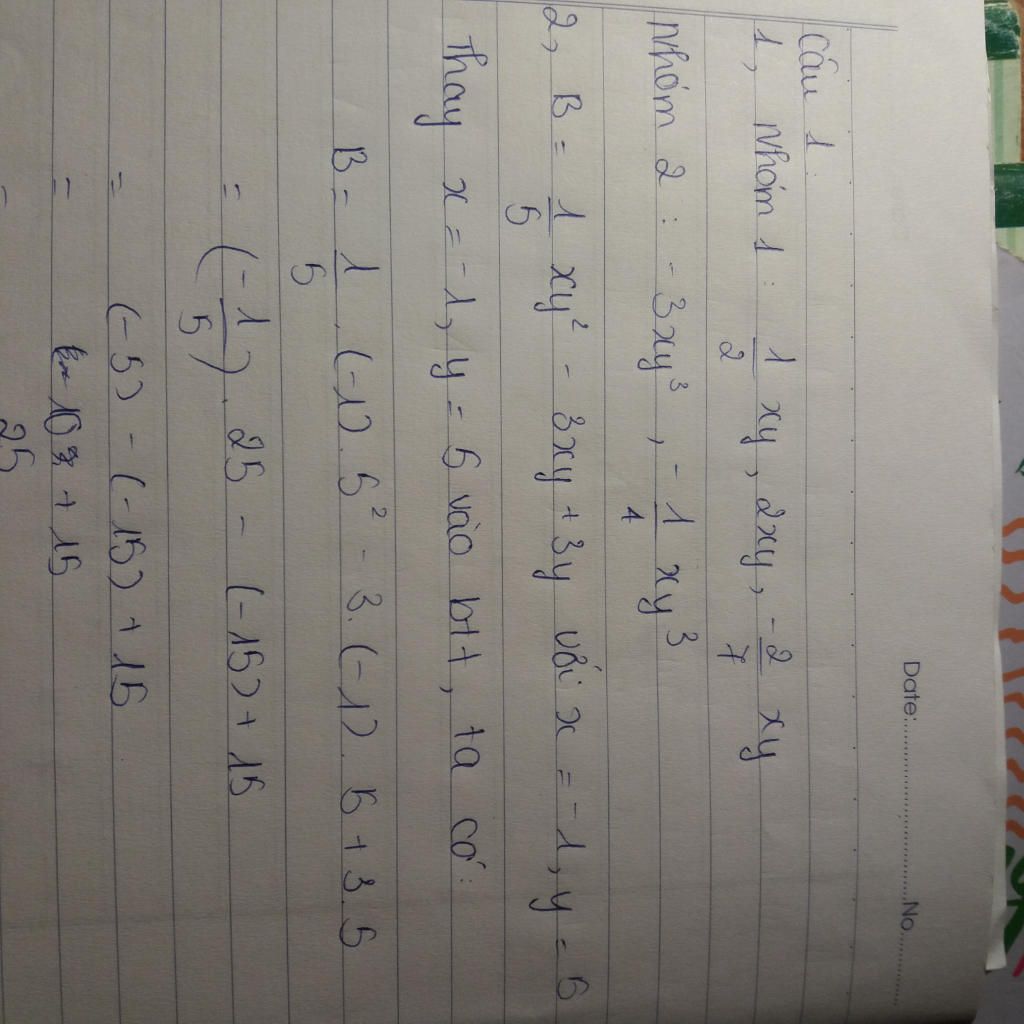 Date: No
Câu 1:
1, Nhóm 1: 1/2 xy, 2xy, -2/7 xy
Nhóm 2: -3xy³, -1/4 xy³
2, B = 1/5 xy² - 3xy + 3y với x = -1, y = 5
Thay x = -1, y = 5 vào btt, ta có:
B = 1/5 . (-1) . 5² - 3. (-1) . 5 + 3.5
= (-1/5) . 25 - (-15) + 15
= (-5) - (-15) + 15
= 10 + 15
= 25